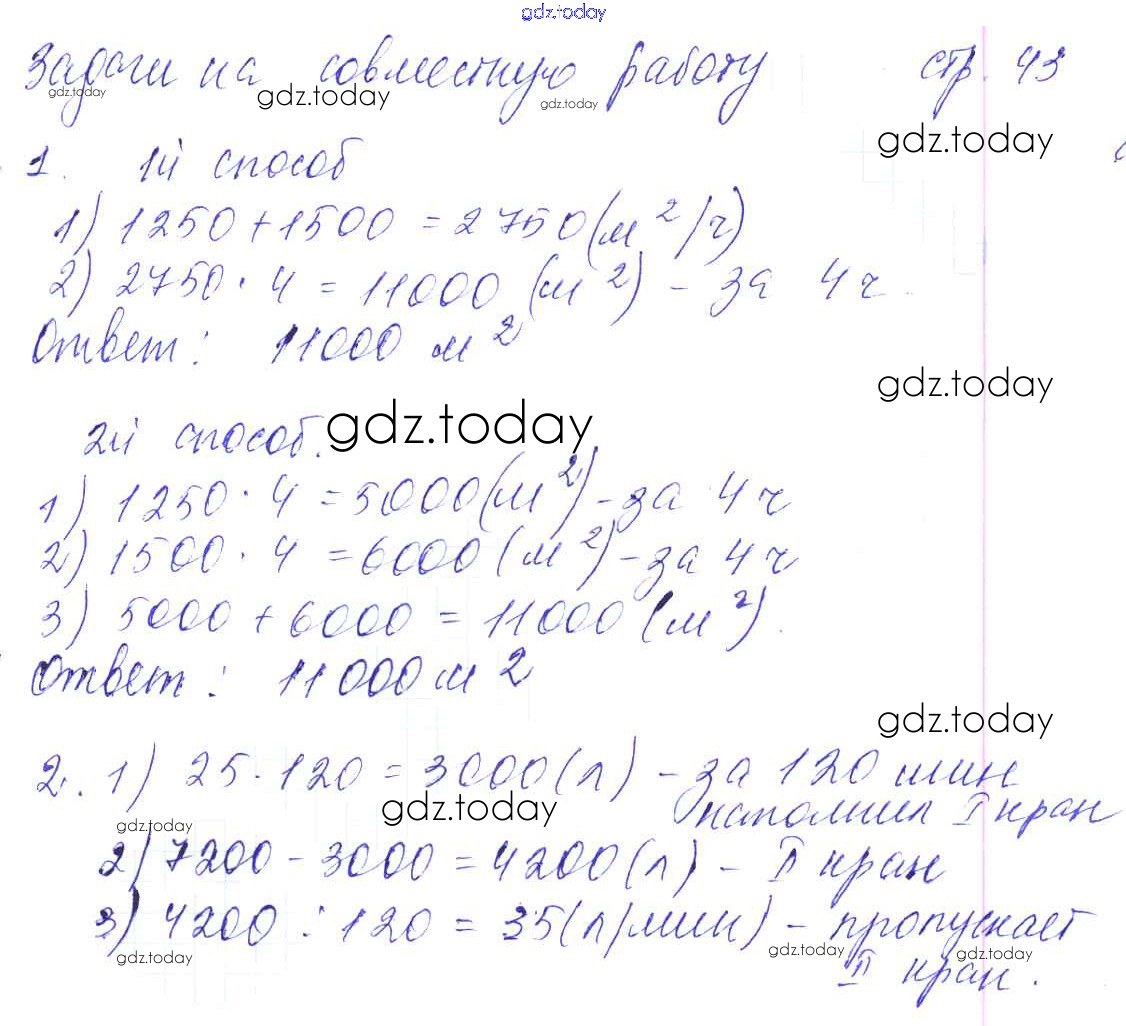 gdz.today
Задачи на совместную работу стр. 43
gdz.today gdz.today gdz.today
gdz.today
1. 1й способ
1) 1250 + 1500 = 2750 (м²/ч)
2) 2750 · 4 = 11000 (м²) - за 4 ч.
Ответ: 11000 м²
gdz.today
gdz.today
2й способ.
1) 1250 · 4 = 5000 (м²) - за 4 ч
2) 1500 · 4 = 6000 (м²) - за 4 ч
3) 5000 + 6000 = 11000 (м²).
Ответ: 11000 м²
gdz.today
2. 1) 25 · 120 = 3000 (л) - за 120 мин
наполнил I кран
gdz.today
gdz.today
2) 7200 - 3000 = 4200 (л) - II кран
3) 4200 : 120 = 35 (л/мин) - пропускает
II кран.
gdz.today gdz.today gdz.today